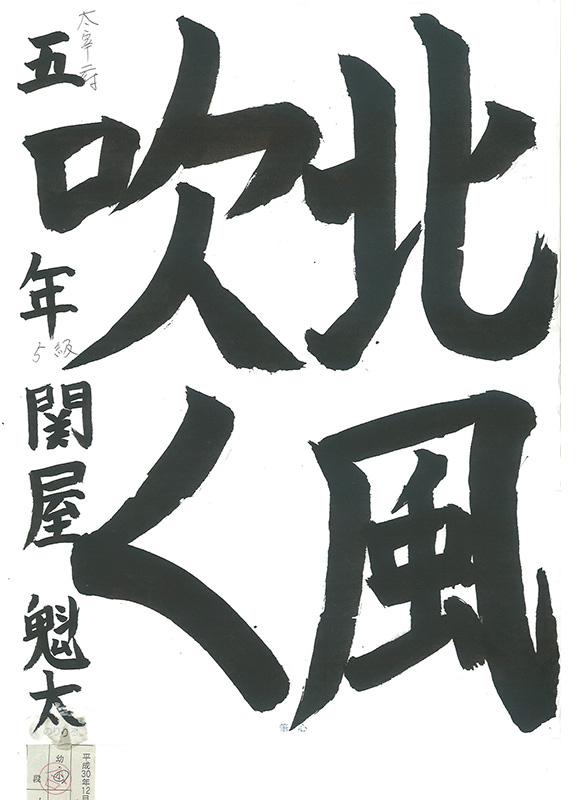 北風
吹く
太宰府
五年 関屋 魁太
5級
筆心
平成30年12月
幼・小
段